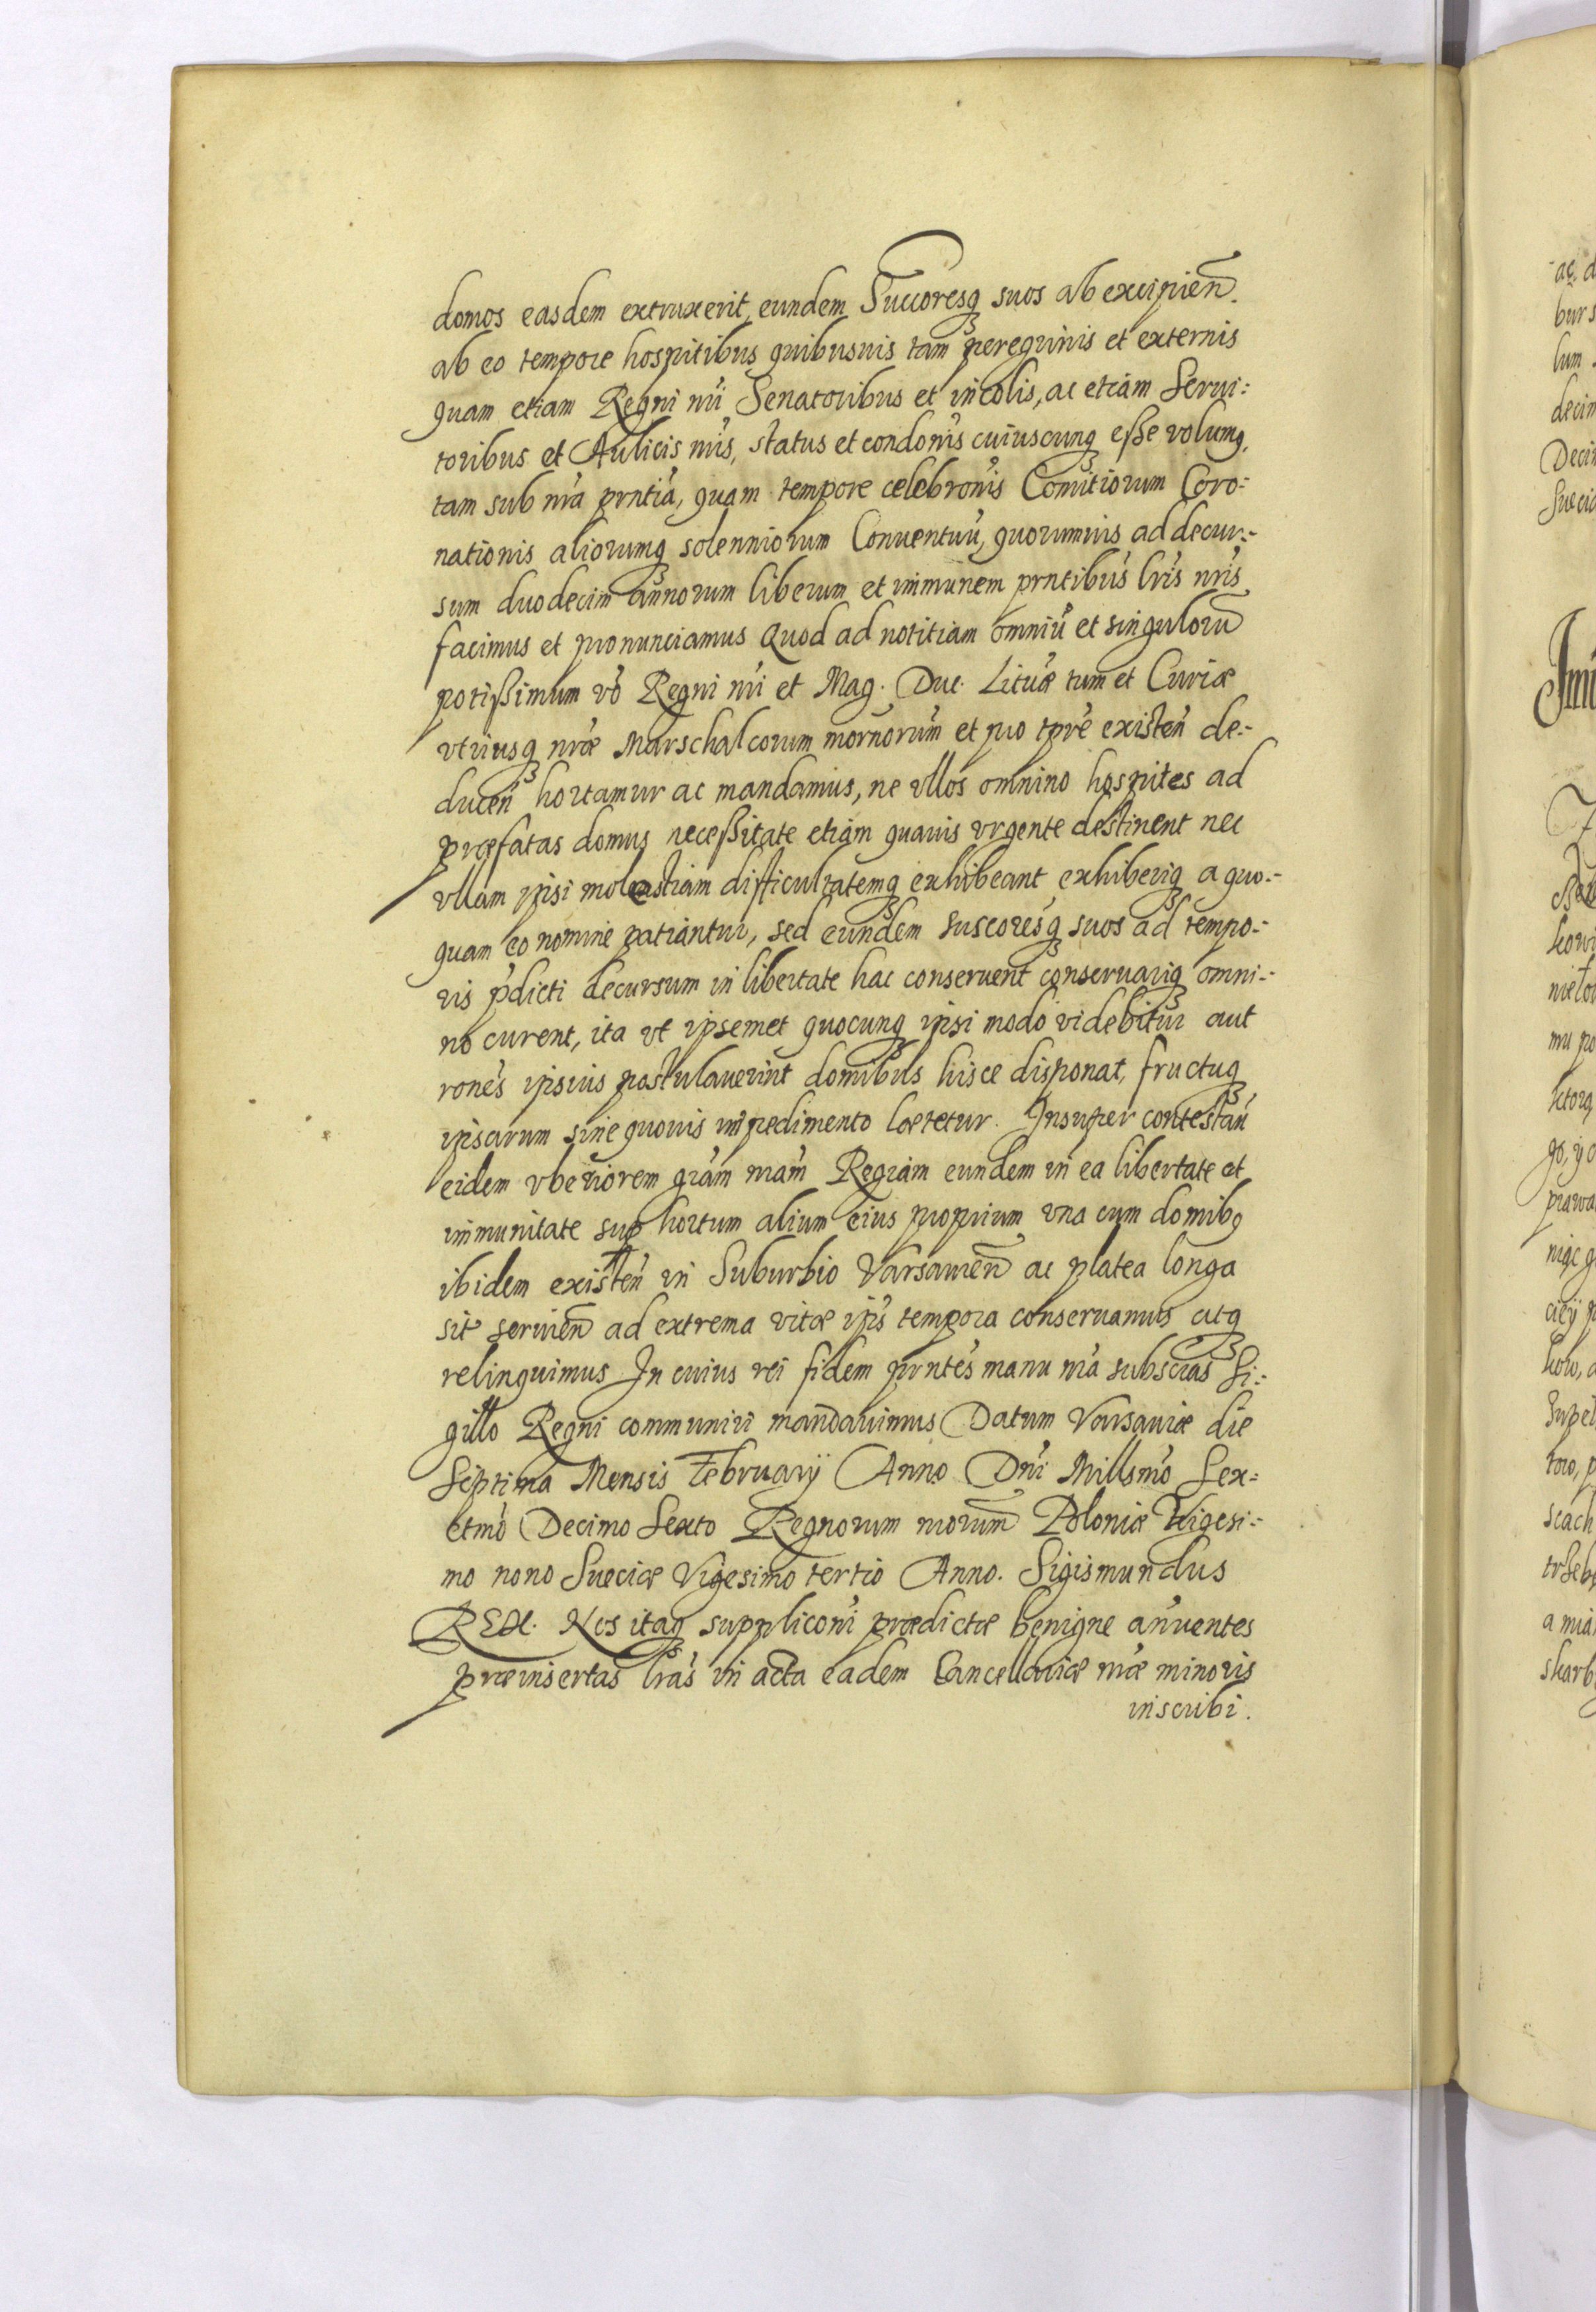 domos easdem extruxerit, eundem Succoresq suos ab excipień.
ab eo tempore hospitibus quibusuis tam peregrinis et externis
quam etiam Regni nri Senatoribus et incolis, ac etiam Serui:
toribus et Aulicis nris, status et condonis cuiuscunq esse volumq,
tam sub nra prntia, quam tempore celebronis Comitiorum Coro:
nationis aliorumq solenniorum Conuentuu, quorumuis ad decur:-
sum duodecim annorum liberum et immunem prntibus lris nris
facimus et pronunciamus Quod ad notitiam omniu et singuloru
potissimum vo Regni nri et Mag. Duc. Lituæ tum et Curiæ
vtriusq nræ Marschalcorum mornorum et pro tpre existen de:-
ducen hortamur ac mandamus, ne vllos omnino hospites ad
præfatas domus necessitate etiam quauis vrgente destinent nec
vllam ipsi molestiam difficultatemq exhibeant exhiberiq a quo:-
quam eo nomine patiantur, sed eundem suscoresq suos ad tempo:-
ris pdicti decursum in libertate hac conseruent conseruariq omni:-
no curent, ita vt ipsemet quocunq ipsi modo videbitur aut
rones ipsius postulauerint domibus hisce disponat, fructuq
ipsarum sine quouis impedimento lætetur. Insuper contestan
eidem vberiorem gram nram Regiam eundem in ea libertate et
immunitate sup hortum alium eius proprium vna cum domibq
ibidem existen in Suburbio Varsauien ac platea longa
sit seruien ad extrema vitæ ipis tempora conseruamus atq
relinquimus In cuius rei fidem prntes manu nra subscras Si:-
gillo Regni communiri mandauimus Datum Varsauiæ die
Septima Mensis February Anno Dni Millsmo Sex=
ctmo Decimo Sexto Regnorum nrorum Poloniæ Vigesi:-
mo nono Sueciæ Vigesimo tertio Anno. Sigismundus
REX. Nos itaq suppliconi prædictæ benigne annuentes
præinsertas lras in acta eadem Cancellariæ nræ minoris
inscribi.